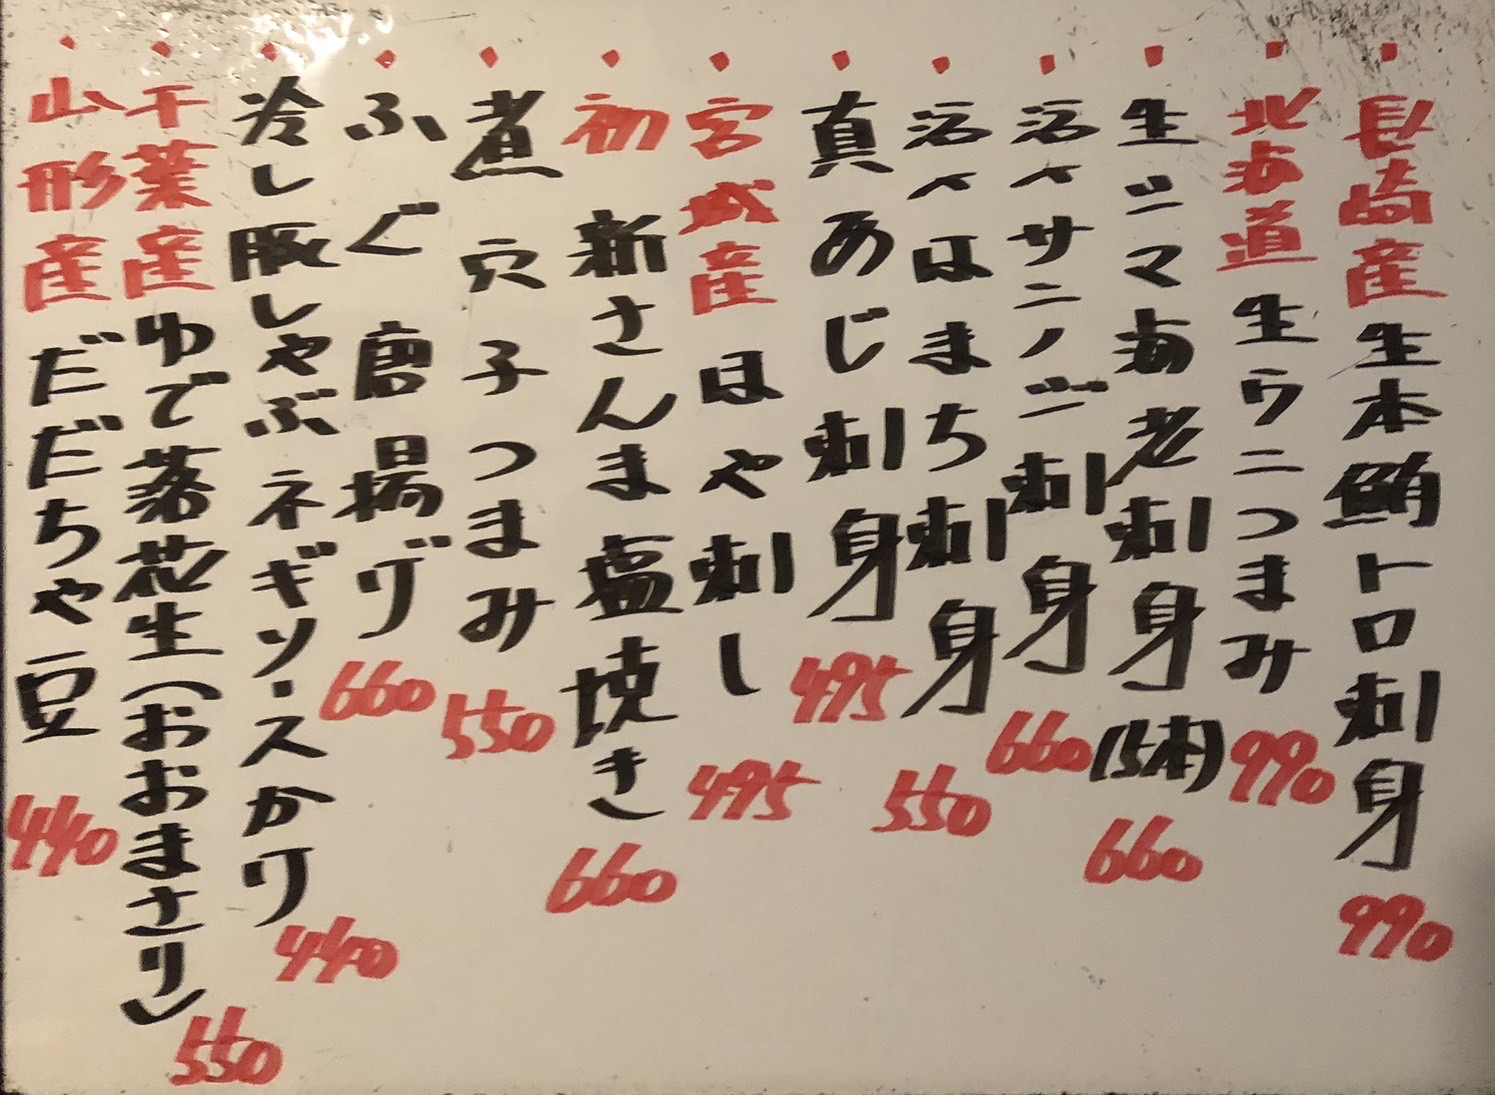 ・長崎産 生本鮪トロ刺身 990
・北海道 生ウニつまみ 990
・生ジマ海老刺身(5本) 660
・活〆サニノジ刺身 660
・活〆はまち刺身 550
・真あじ刺身 495
・宮城産 ほや刺し 495
・初 新さんま塩焼き 660
・煮穴子つまみ 550
・ふぐ唐揚げ 660
・冷し豚しゃぶネギソースかり 440
・千葉産 ゆで落花生(おおまさり) 550
・山形産 だだちゃ豆 440